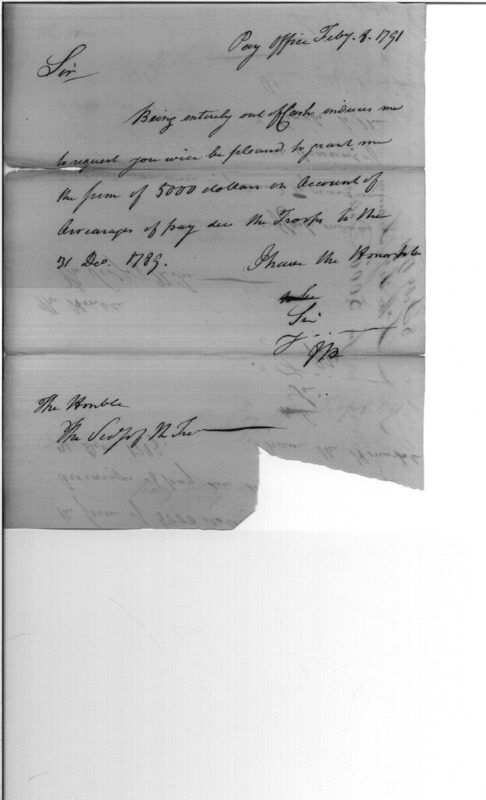 Pay Office Feby. 8. 1791
Sir
Being entirely out of Cash induces me
to request you will be pleased to grant me
the sum of 5000 dollars on Account of
Arrearages of pay due the Troops to the
31 Dec. 1789.
I have the Honor to be
Sir
The Honble
The Secy of the Tre